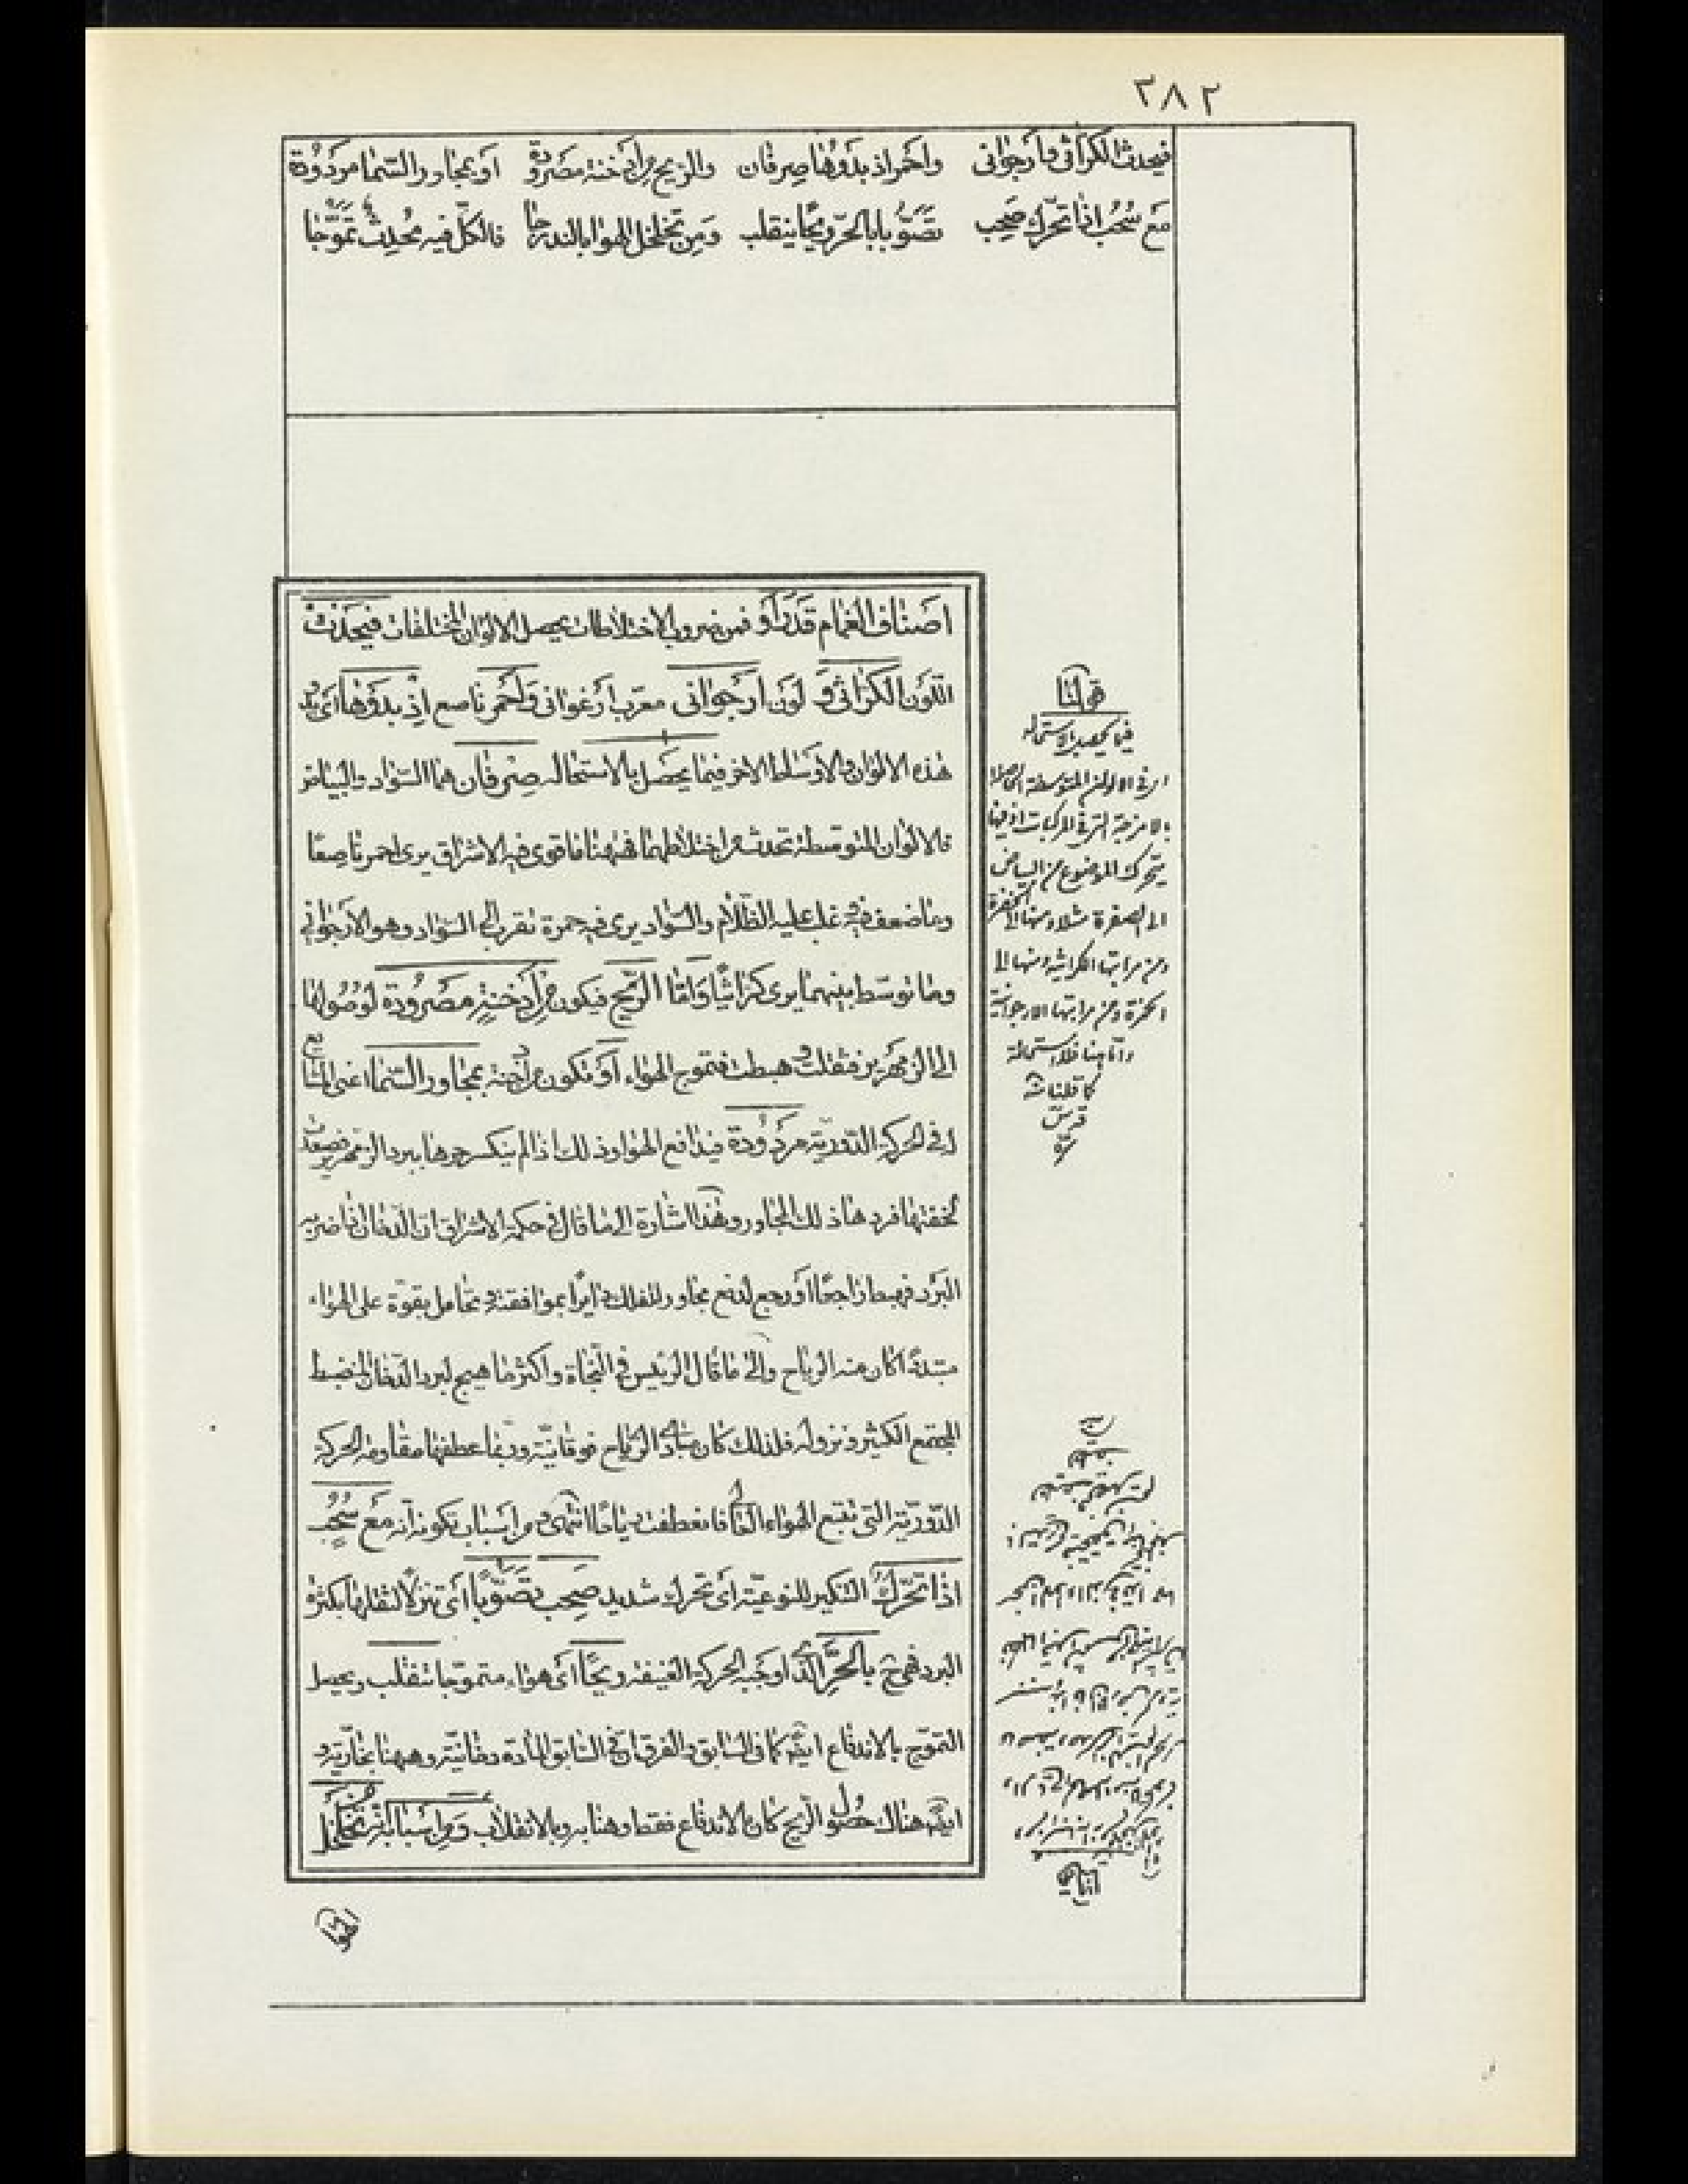 ٢٨٢
فيحدث الكراثي وارجواني واحمر اذ بدؤها صرفان والريح من ادخنة مصرودة او بمجاور السما مردودة
مع سحب اذا تحرك صحب تصوبا بالحر ريحا ينقلب ومن تخلخل الهوا بالندرجا فالكل فيه محدث تموجا
اصناف الغمام قدراوا فمن ضروب الاختلاطات يحصل الالوان المختلفات فيحدث
اللون الكراثي و لون ارجواني معرب ارغواني واحمر ناصع اذ بدؤها اى بدء
هذه الالوان والاوساط الاخر فيما يحصل بالاستحاله صرفان هما السواد والبياض
فالالوان المتوسطة تحدث من اختلاطهما فههنا ما قوى فيه الاشراق يرى احمر ناصعا
وما ضعف فيه غلب عليه الظلام والسواد يرى فيه حمرة تقرب الى السواد وهو الارجواني
وما توسط بينهما يرى كراثيا واما الريح فيكون من ادخنة مصرودة لوصولها
الى الزمهرير فثقلت و هبطت فتموج الهواء او تكون من ادخنة بمجاور السما اعنى المشايع
لها في الحركة الدورية مردودة فيدافع الهوا وذلك اذا لم ينكسر حرها ببرد الزمهرير فصعدت
لخفتها فردها ذلك المجاور وهذا اشارة الى ما قال في حكمة الاشراق ان الدخان اذا ضربه
البرد فهبط راجعا او رجع لدفع مجاور للفلك دايرا بموافقته و تحامل بقوة على الهواء
متبددا كان منه الرياح والى ما قال الرئيس في النجاة واكثر ما هيج لبرد الدخان المنضبط
المجتمع الكثير و نزوله فلذلك كان مبادى الرياح فوقانية وربما عطفها مقاومة الحركة
الدورية التى تتبع الهواء العالى فانعطفت رياحا انتهى و من اسباب تكونه انه مع سحب
اذا تحرك التنكير للنوعية اى تحرك شديد صحب تصوبا اى تنزلا لثقلها بكثرة
البرد فهى ح بالحر الذى اوجبه الحركة العنيفة ريحا اى هواء متموجا تنقلب ويحصل
التموج بالاندفاع ايضا كما في السابق والفرق ان في السابق المادة دخانية وههنا بخارية و
ايضا هناك حصول الريح كان بالاندفاع فقط وهنا به و بالانقلاب و من اسبابه انه من تخلخل
الهوا
قولنا
فيما يحصل بالاستحاله
اى في الالوان المتوسطة الحاصلة
بالامزجة التى في المركبات اذ فيها
يتحرك الموضوع من البياض
الى الصفرة مثلا ومنها الى الخضرة
ومن مراتبها الكراثية ومنها الى
الحمرة ومن مراتبها الارجوانية
واما هنا فلا استحالة
كما قلنا منه
قدس
سره